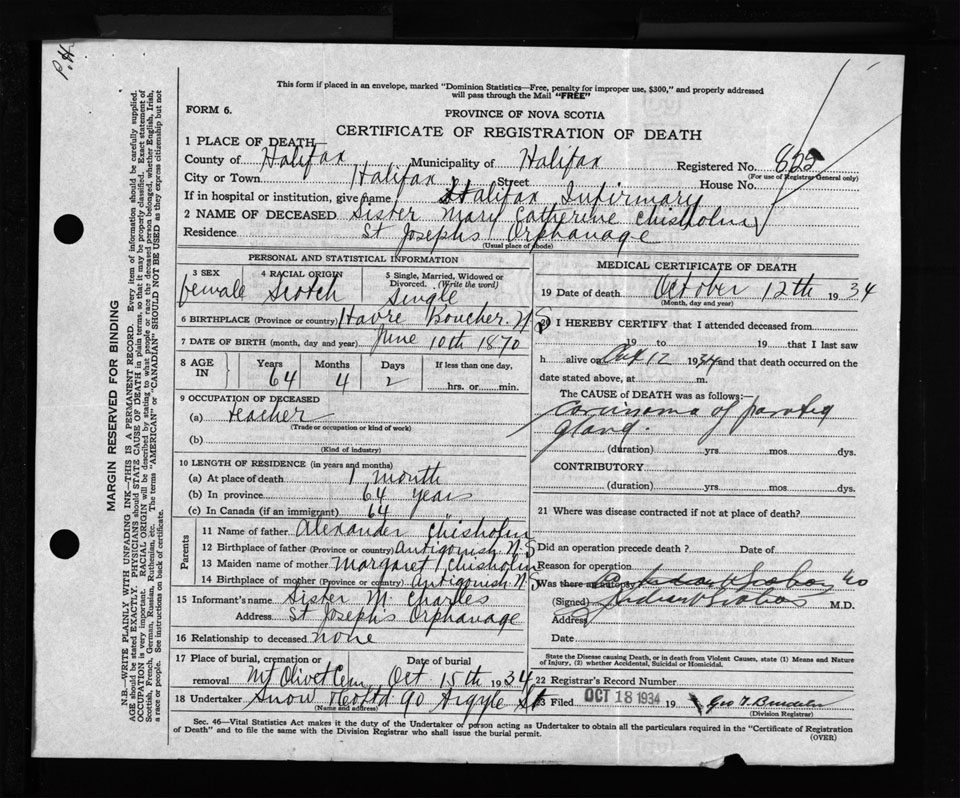 P.H
This form if placed in an envelope, marked "Dominion Statistics—Free, penalty for improper use, $300," and properly addressed
will pass through the Mail "FREE"
FORM 6.
PROVINCE OF NOVA SCOTIA
CERTIFICATE OF REGISTRATION OF DEATH
1 PLACE OF DEATH—
County of Halifax Municipality of Halifax Registered No. 822
(For use of Registrar General only)
City or Town Halifax Street House No.
If in hospital or institution, give name Halifax Infirmary
2 NAME OF DECEASED Sister Mary Catherine Chisholm
Residence St Josephs Orphanage
(Usual place of abode)
PERSONAL AND STATISTICAL INFORMATION
3 SEX 4 RACIAL ORIGIN 5 Single, Married, Widowed or
Divorced. (Write the word)
female Scotch Single
6 BIRTHPLACE (Province or country) Havre Boucher N S
7 DATE OF BIRTH (month, day and year) June 10th 1870
8 AGE IN Years Months Days If less than one day,
64 4 2 hrs. or min.
9 OCCUPATION OF DECEASED
(a) teacher
(Trade or occupation or kind of work)
(b)
(Kind of industry)
10 LENGTH OF RESIDENCE (in years and months)
(a) At place of death 1 month
(b) In province 64 years
(c) In Canada (if an immigrant) 64 "
Parents
11 Name of father Alexander Chisholm
12 Birthplace of father (Province or country) Antigonish N.S
13 Maiden name of mother Margaret Chisholm
14 Birthplace of mother (Province or country) Antigonish N.S
15 Informant's name Sister M. Charles
Address St Josephs Orphanage
16 Relationship to deceased none
17 Place of burial, cremation or removal Date of burial
Mt Olivet Cem Oct 15th 1934
18 Undertaker Snow & Co Ltd 90 Argyle St
(Name and address)
MEDICAL CERTIFICATE OF DEATH
19 Date of death October 12th 1934
(Month, day and year)
20 I HEREBY CERTIFY that I attended deceased from
19 to 19 that I last saw
h alive on Oct 12 1934 and that death occurred on
date stated above, at m.
The CAUSE of DEATH was as follows:—
Carcinoma of parotid
gland.
(duration) yrs mos dys.
CONTRIBUTORY
(duration) yrs mos dys.
21 Where was disease contracted if not at place of death?
Did an operation precede death? Date of
Reason for operation
Was there an autopsy
(Signed) M.D.
Address
Date
State the Disease causing Death, or in death from Violent Causes, state (1) Means and Nature
of Injury, (2) whether Accidental, Suicidal or Homicidal.
22 Registrar's Record Number
23 Filed OCT 18 1934 19
(Division Registrar)
Sec. 46—Vital Statistics Act makes it the duty of the Undertaker or person acting as Undertaker to obtain all the particulars required in the "Certificate of Registration
of Death" and to file the same with the Division Registrar who shall issue the burial permit.
(OVER)
MARGIN RESERVED FOR BINDING
N.B.—WRITE PLAINLY WITH UNFADING INK—THIS IS A PERMANENT RECORD. Every item of information should be carefully supplied.
AGE should be stated EXACTLY. PHYSICIANS should STATE CAUSE OF DEATH in plain terms, so that it may be properly classified. Exact statement of
OCCUPATION is very important. RACIAL ORIGIN will be described by stating to what people or race the deceased person belonged, whether English, Irish,
Scottish, French, German, Russian, Ruthenian, etc. The terms "AMERICAN" or "CANADIAN" SHOULD NOT BE USED as they express citizenship but not
a race or people. See instructions on back of certificate.